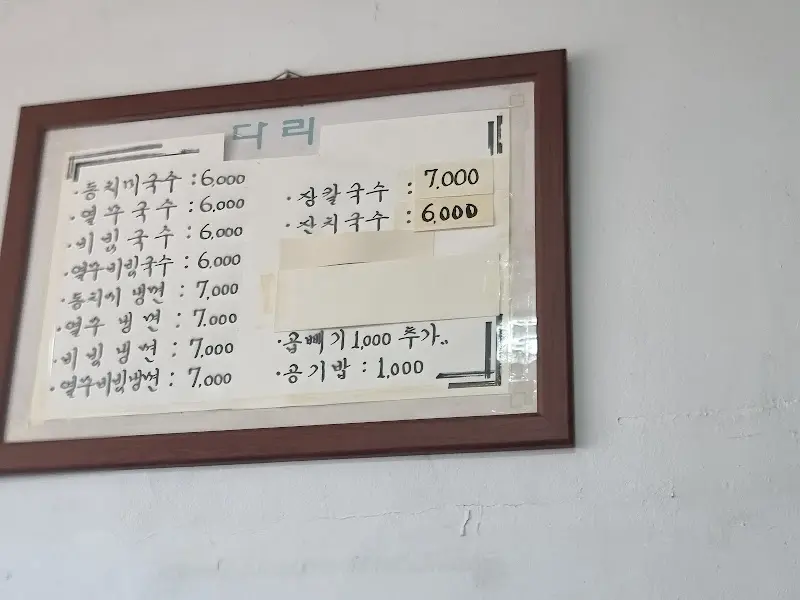 다리
·동치미국수 : 6,000
·열무국수 : 6,000
·비빔국수 : 6,000
·열무비빔국수 : 6,000
·동치미 냉면 : 7,000
·열무 냉면 : 7.000
·비빔 냉면 : 7,000
·열무비빔냉면 : 7,000
·장칼국수 : 7.000
·잔치국수 : 6,000
·곱빼기 1,000 추가..
·공기밥 : 1,000